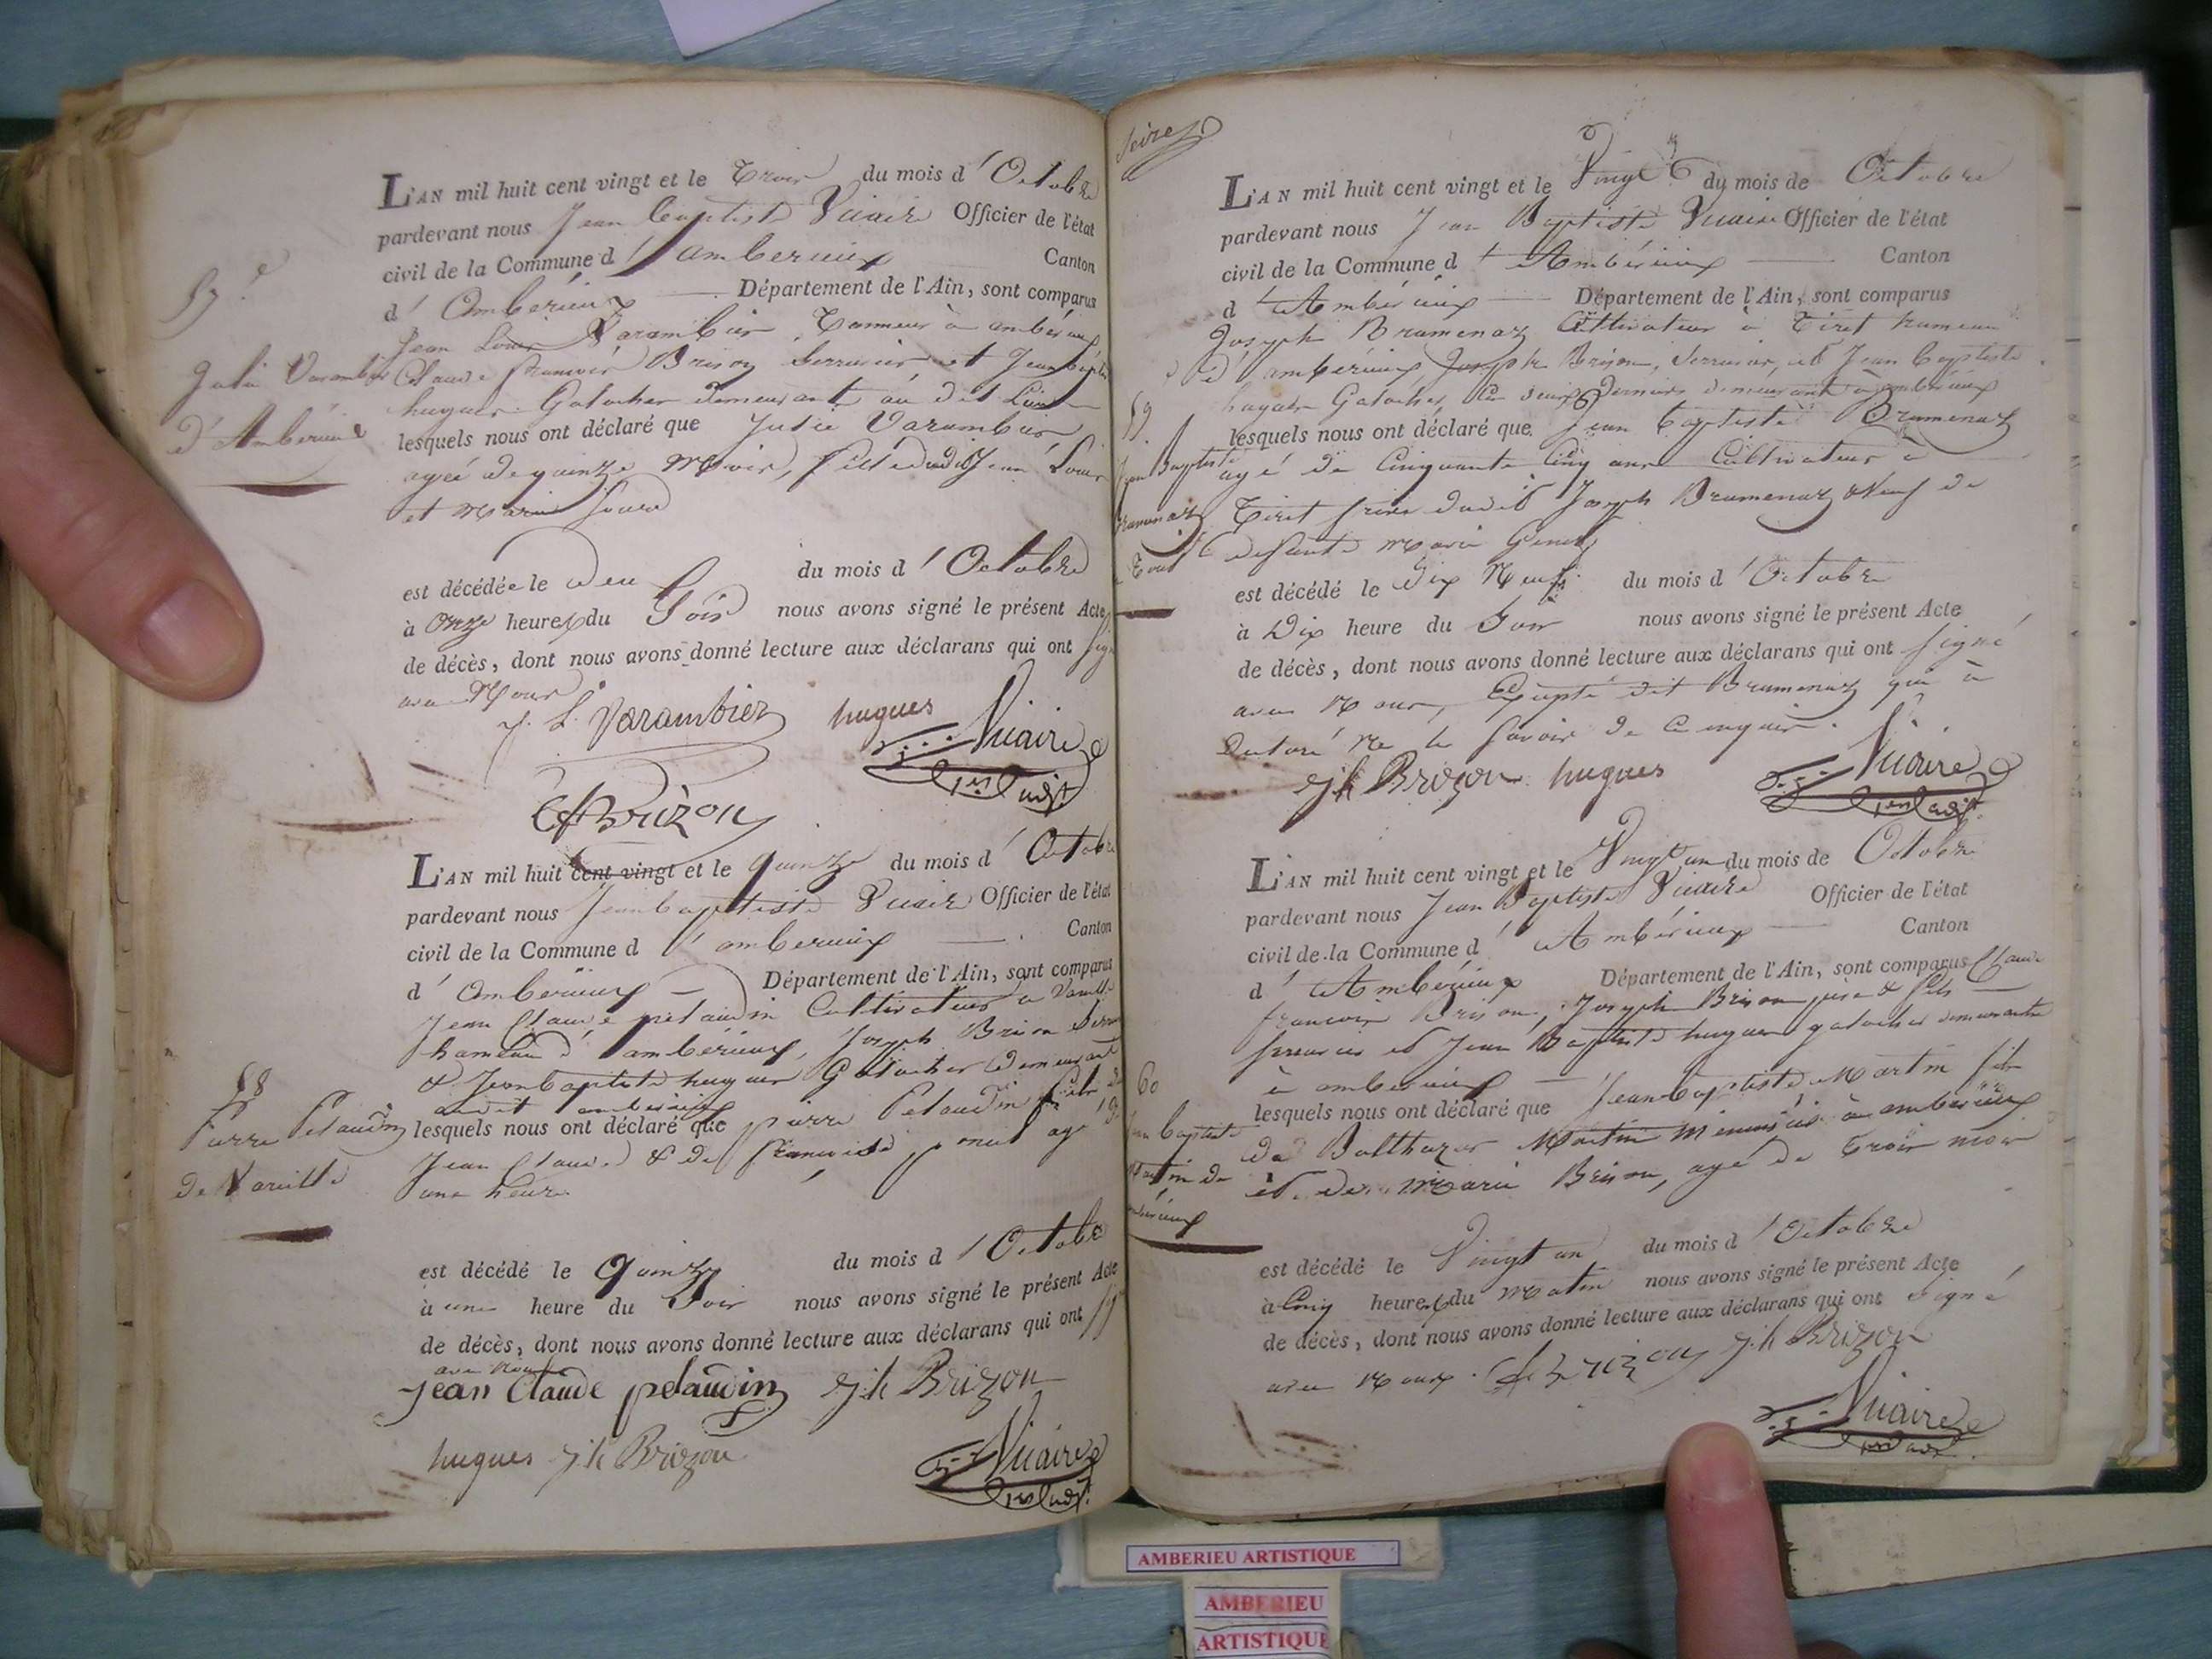 L'AN mil huit cent vingt et le Trois du mois d'Octobre
pardevant nous Jean Baptiste Vicaire Officier de l'état
civil de la Commune d'amberieux Canton
d'Amberieux Département de l'Ain, sont comparus
Jean Louis Varambier, Tanneur à amberieux
Claude françois Brison Serrurier, et Jean Baptiste
hugues Galocher demeurants au dit Lieu
lesquels nous ont déclaré que Julie Varambier
agée de quinze Mois, fille dudit Jean Louis
et Marie
est décédée le deux du mois d'Octobre
à Onze heures du Soir nous avons signé le présent Acte
de décès, dont nous avons donné lecture aux déclarans qui ont signé
avec Nous
J. L. Varambier hugues Vicaire
Cf Brizon
57e
Julie Varambier
d'Amberieux
L'AN mil huit cent vingt et le quinze du mois d'Octobre
pardevant nous Jean baptiste Vicaire Officier de l'état
civil de la Commune d'amberieux Canton
d'Amberieux Département de l'Ain, sont comparus
Jean Claude pelaudin Cultivateur à Vareille
hameau d'ambérieux, Joseph Brison Serrurier
& Jean baptiste hugues Galocher demeurant
audit amberieux
lesquels nous ont déclaré que pierre Pelaudin fils de
Jean Claude & de françoise agé d'
une heure
est décédé le quinze du mois d'Octobre
à une heure du Soir nous avons signé le présent Acte
de décès, dont nous avons donné lecture aux déclarans qui ont signé
avec nous
jean Claude pelaudin jh Brizon
hugues jh Brizon Vicaire
58
Pierre Pelaudin
de Vareille
L'AN mil huit cent vingt et le Vingt du mois de Octobre
pardevant nous Jean Baptiste Vicaire Officier de l'état
civil de la Commune d'Ambérieux Canton
d'Ambérieux Département de l'Ain, sont comparus
Joseph Bramenaz Cultivateur à Tiret hameau
d'ambérieux Joseph Brison, Serrurier, et Jean baptiste
hugues Galocher, Ces deux Derniers demeurant à ambérieux
lesquels nous ont déclaré que Jean baptiste Bramenaz
agé de Cinquante Cinq ans Cultivateur à
Tiret frère dudit Joseph Bramenaz Veuf de
défunte Marie
est décédé le Dix Neuf du mois d'Octobre
à Dix heure du Soir nous avons signé le présent Acte
de décès, dont nous avons donné lecture aux déclarans qui ont signé
avec Nous, Excepté dit Bramenaz qui à
declaré Ne le Savoir de Ce enquis.
jh Brizon hugues Vicaire
59
Jean Baptiste
Bramenaz
L'AN mil huit cent vingt et le Vingt un du mois de Octobre
pardevant nous Jean Baptiste Vicaire Officier de l'état
civil de la Commune d'Ambérieux Canton
d'Ambérieux Département de l'Ain, sont comparus Claude
francois Brison, Joseph Brison père & fils
serrurier et Jean Baptiste hugues galocher demeurants
à amberieux
lesquels nous ont déclaré que Jean Baptiste Martin fils
de Balthazar Martin Menuisier à amberieux
et de Marie Brison, agé de trois mois
est décédé le Vingt un du mois d'Octobre
à Cinq heures du Matin nous avons signé le présent Acte
de décès, dont nous avons donné lecture aux déclarans qui ont signé
avec Nous. Cf Brizon jh Brizon
Vicaire
60
Jean baptiste
Martin de
amberieux
AMBERIEU ARTISTIQUE
AMBERIEU
ARTISTIQUE